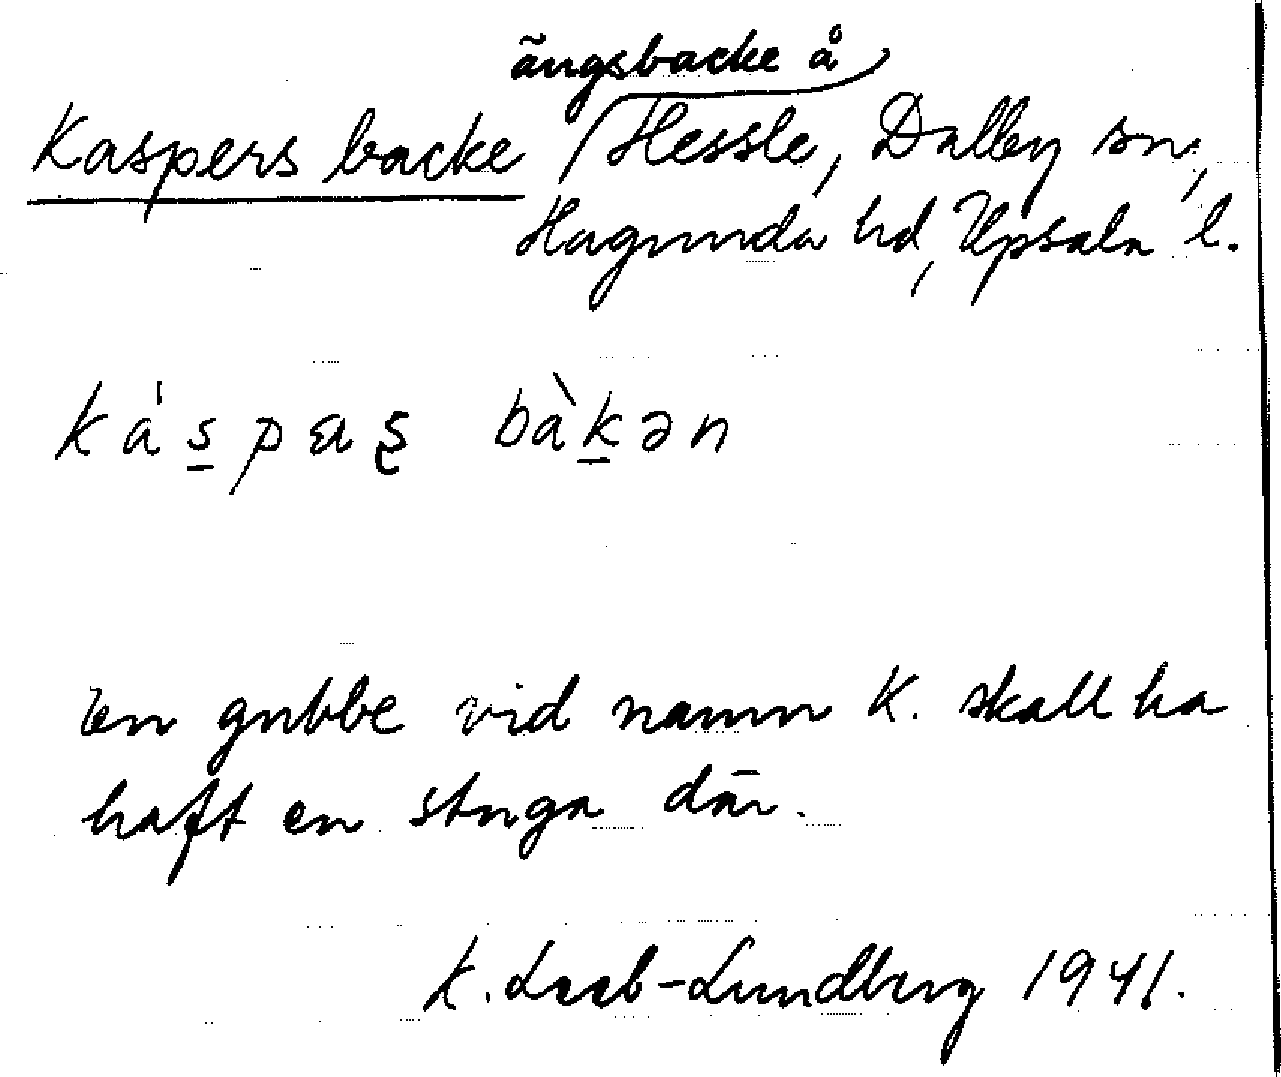 ängsbacke å
Kaspers backe / Hessle, Dalby sn,
Hagunda hd, Upsala l.
káspaʂ bàkən
En gubbe vid namn K. skall ha
haft en stuga där.
K. Leeb-Lundberg 1941.